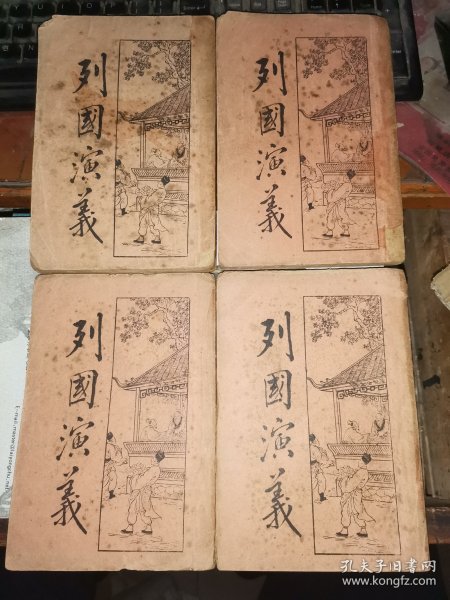 列國演義
列國演義
列國演義
列國演義
孔夫子旧书网
www.kongfz.com